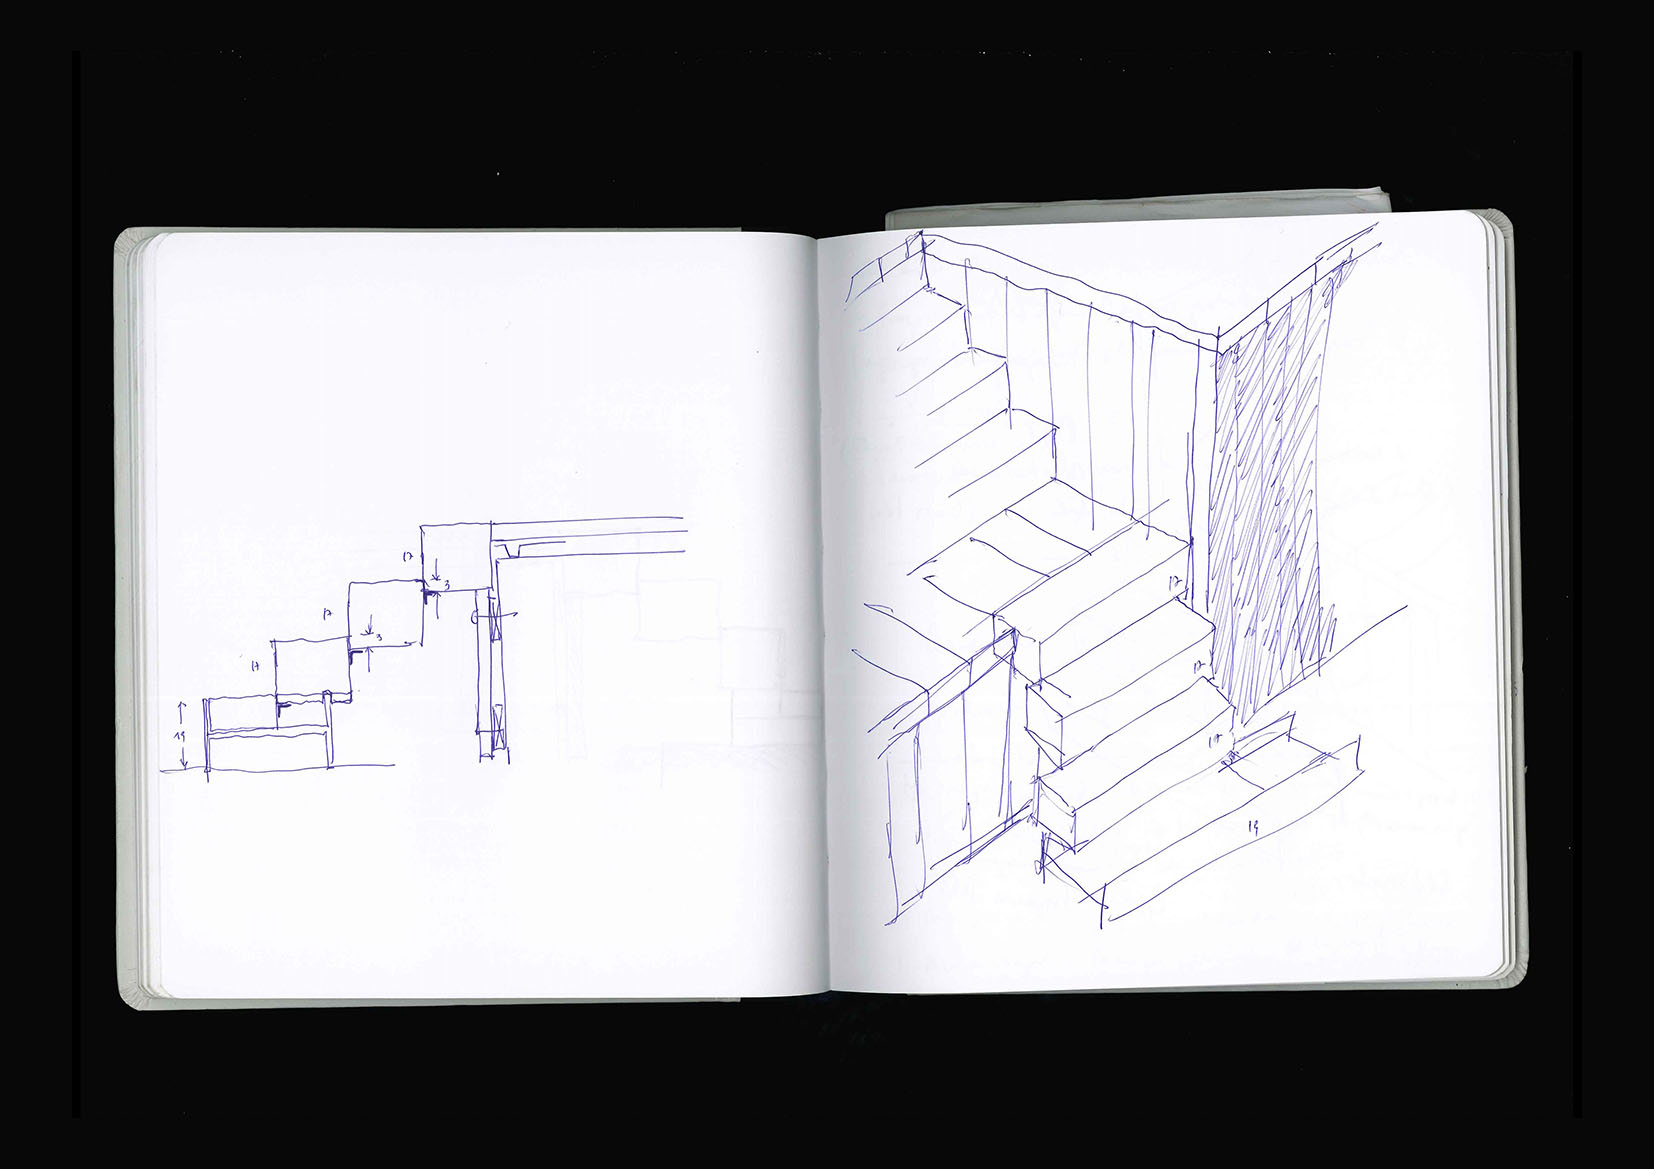 17
3
17
3
17
19
17
17
17
19